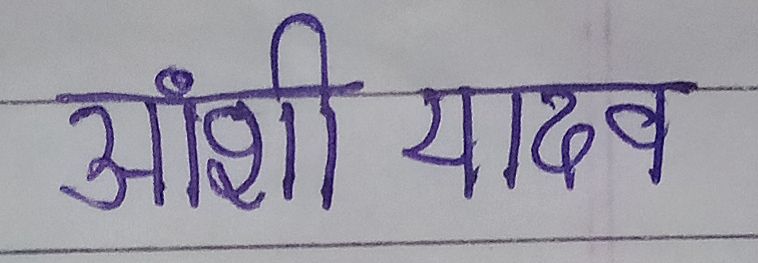 आंशी यादव